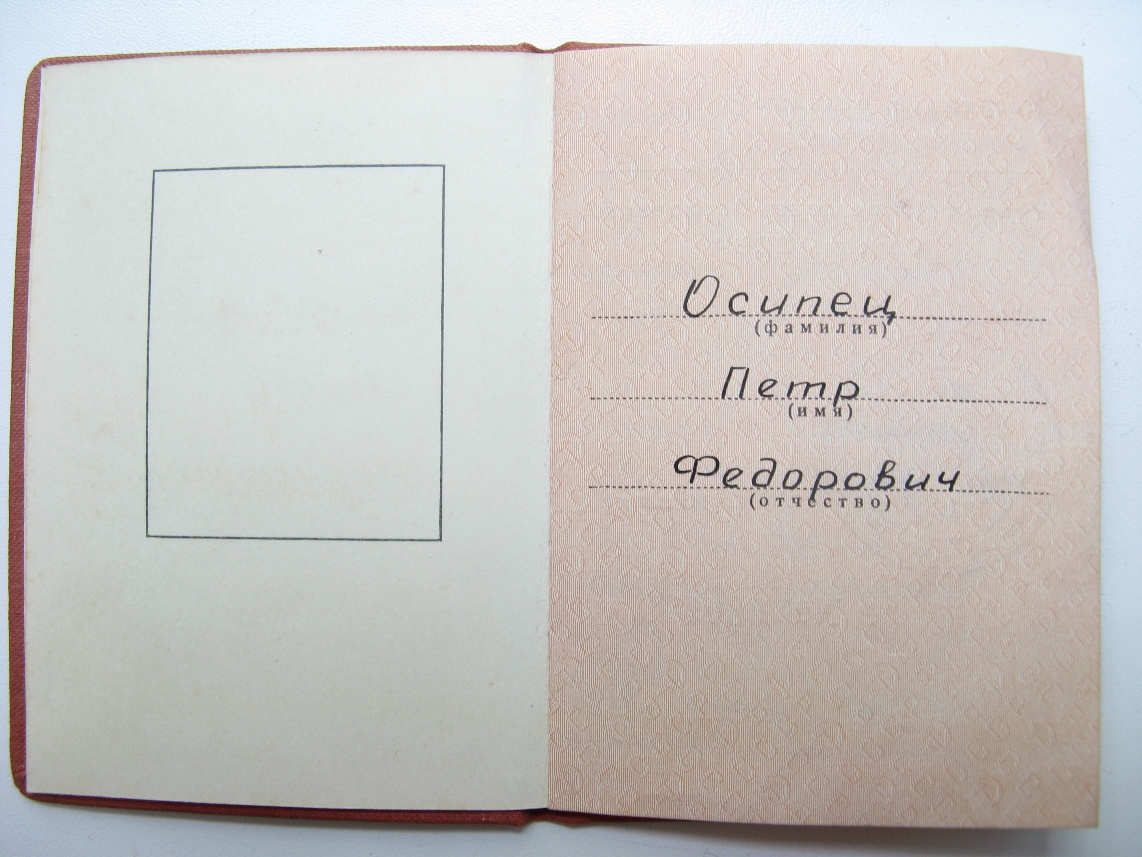 Осипец
(фамилия)
Петр
(имя)
Федорович
(отчество)